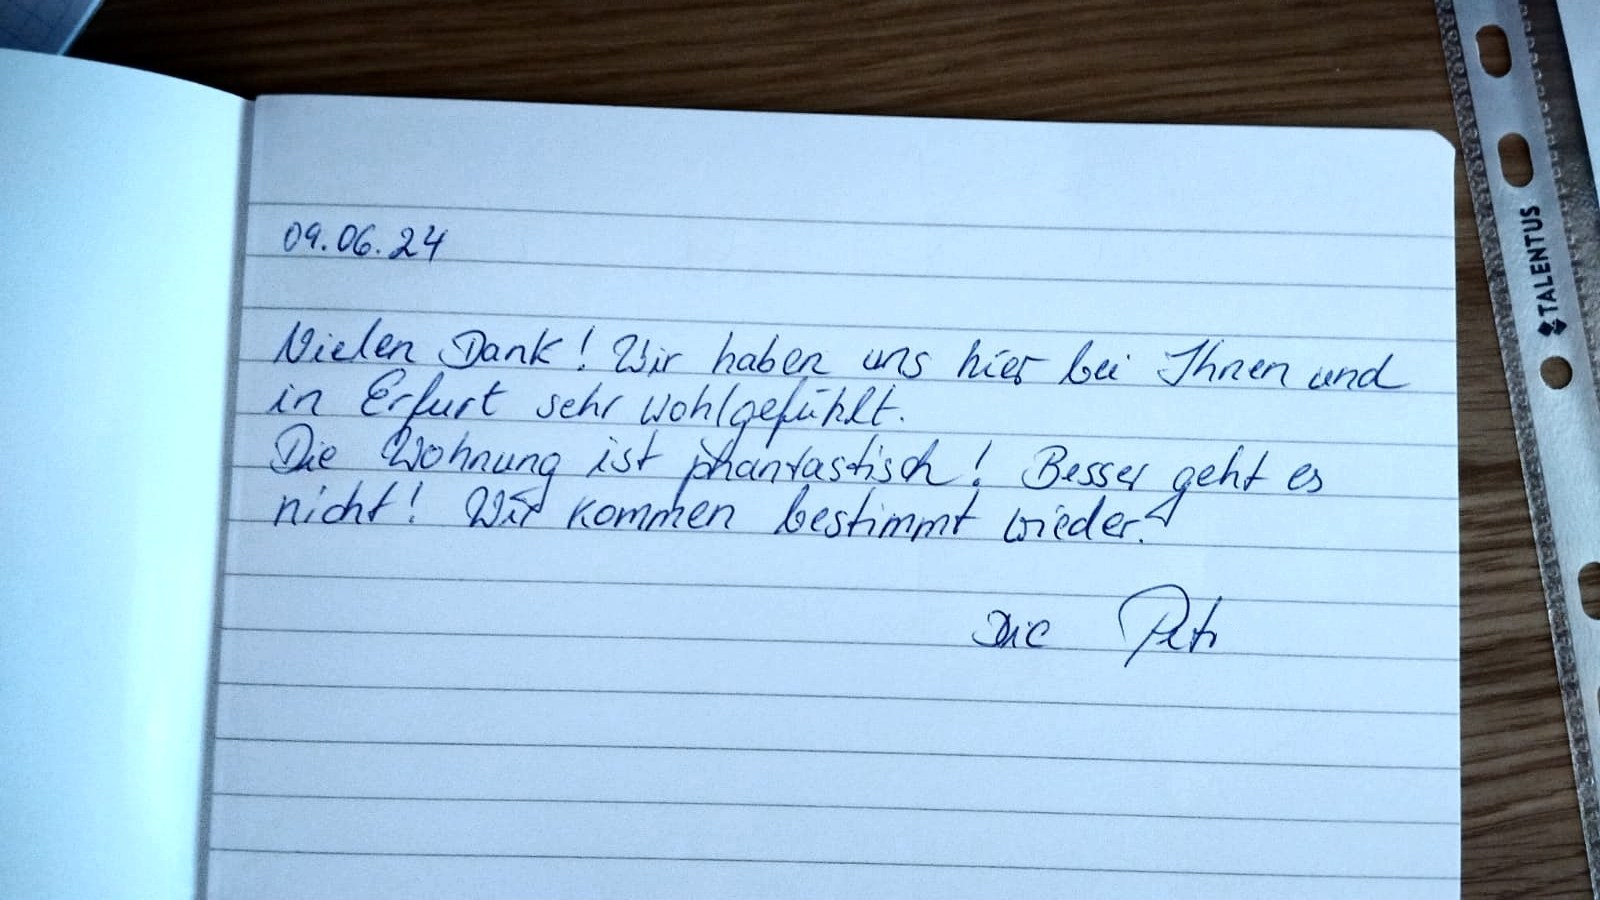 09.06.24
Vielen Dank! Wir haben uns hier bei Ihnen und
in Erfurt sehr wohlgefühlt.
Die Wohnung ist phantastisch! Besser geht es
nicht! Wir kommen bestimmt wieder!
Die
TALENTUS